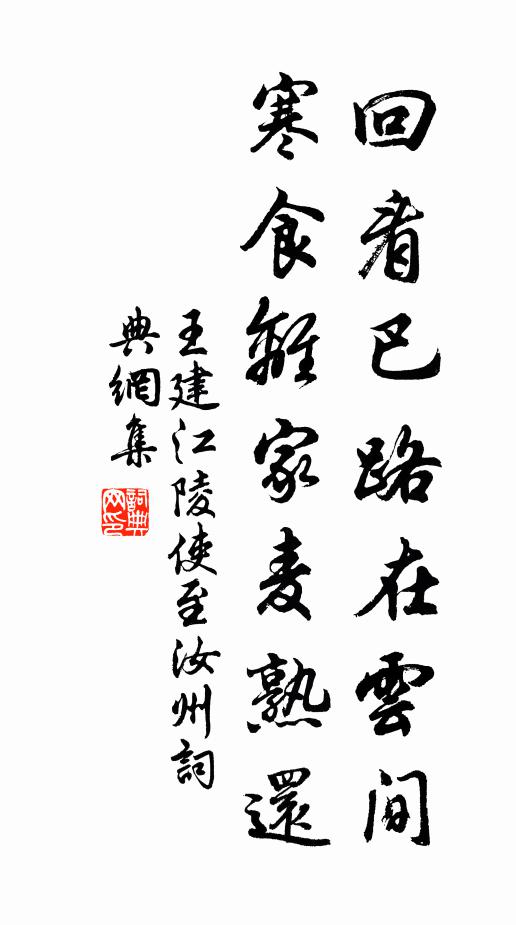 回看巴路在雲間
寒食離家麦熟還
王建江陵使至汝州詞
典網集
詞典
网印